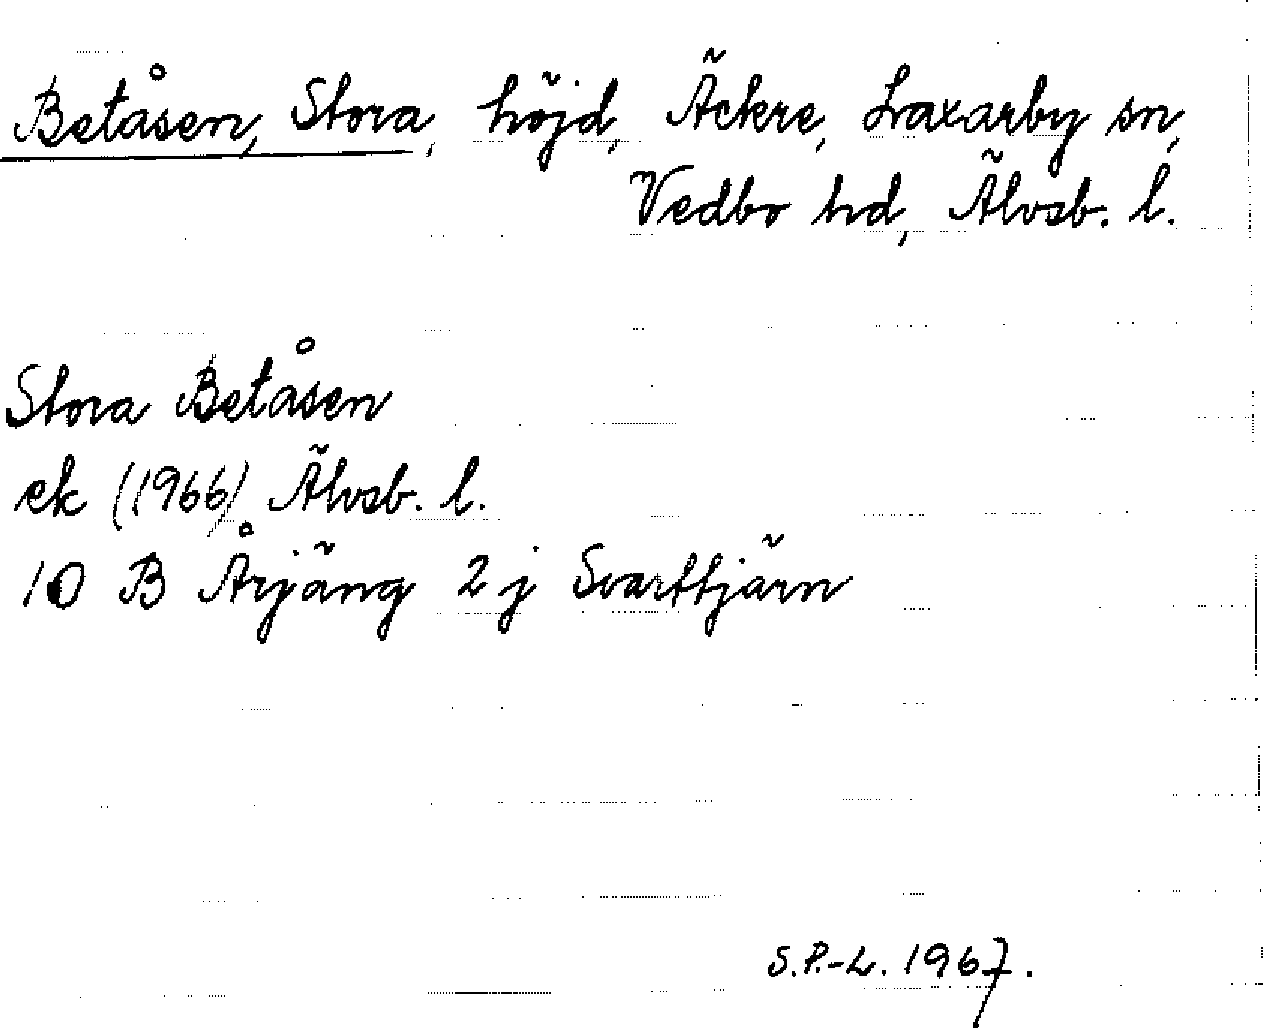 Betåsen, Stora, höjd, Äckre, Laxarby sn,
Vedbo hd, Älvsb. l.
Stora Betåsen
ek (1966) Älvsb. l.
10 B Årjäng 2 j Svarttjärn
S.P.-L. 1967.